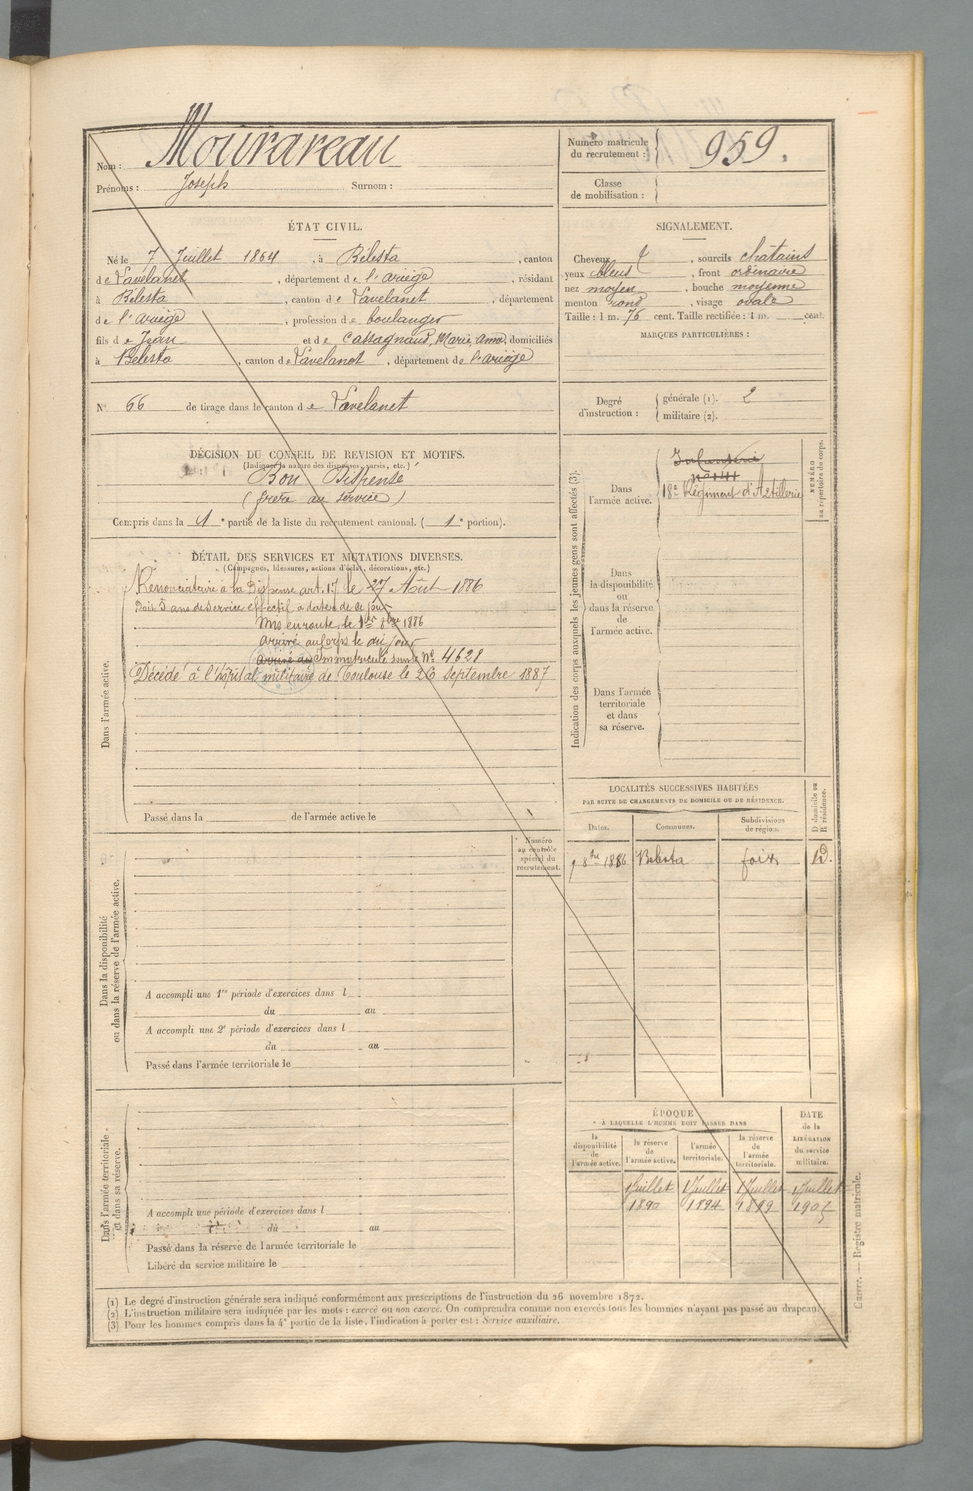 Nom : Mourareau
Prénoms : Joseph Surnom :
Numéro matricule du recrutement : 959.
Classe de mobilisation :
ÉTAT CIVIL.
Né le 7 Juillet 1864, à Bélesta, canton
de Lavelanet, département de l'ariège, résidant
à Bélesta, canton de Lavelanet, département
de l'ariège, profession de boulanger
fils de Jean et de Cassagnaud, Marie, anna, domiciliés
à Bélesta, canton de Lavelanet, département de l'ariège
N° 66 de tirage dans le canton de Lavelanet
SIGNALEMENT.
Cheveux, sourcils châtains
yeux bleus, front ordinaire
nez moyen, bouche moyenne
menton rond, visage ovale
Taille : 1 m. 76 cent. Taille rectifiée : 1 m. cent.
MARQUES PARTICULIÈRES :
Degré d'instruction : générale (1). 2
militaire (2).
DÉCISION DU CONSEIL DE REVISION ET MOTIFS.
(Indiquer la nature des dispenses, sursis, etc.)
Bon Dispensé
(frère au service)
Compris dans la 1e partie de la liste du recrutement cantonal. (1e portion).
DÉTAIL DES SERVICES ET MUTATIONS DIVERSES.
(Campagnes, blessures, actions d'éclat, décorations, etc.)
Dans l'armée active.
Renonciataire à la Dispense art. 17 le 27 Août 1886
Doit 5 ans de service effectif à dater de ce jour
Mis en route le 1er 8bre 1886
arrivé au Corps le dit jour
arrivé au Immatriculé sous le N° 4628
Décédé à l'hôpital militaire de Toulouse le 26 Septembre 1887
Passé dans la de l'armée active le
Indication des corps auxquels les jeunes gens sont affectés (3).
Dans l'armée active.
Infanterie
18e Régiment d'Artillerie
NUMÉRO au répertoire du corps.
Dans la disponibilité ou dans la réserve de l'armée active.
Dans l'armée territoriale et dans sa réserve.
LOCALITÉS SUCCESSIVES HABITÉES
PAR SUITE DE CHANGEMENTS DE DOMICILE OU DE RÉSIDENCE.
Dates. Communes. Subdivisions de région. D domicile ou R résidence.
1 8bre 1886 Bélesta foix D.
Numéro au contrôle spécial du recrutement.
Dans la disponibilité ou dans la réserve de l'armée active.
A accompli une 1re période d'exercices dans l
du au
A accompli une 2e période d'exercices dans l
du au
Passé dans l'armée territoriale le
Dans l'armée territoriale et dans sa réserve.
A accompli une période d'exercices dans l
du au
Passé dans la réserve de l'armée territoriale le
Libéré du service militaire le
ÉPOQUE
A LAQUELLE L'HOMME DOIT PASSER DANS
la disponibilité de l'armée active. la réserve de l'armée active. l'armée territoriale. la réserve de l'armée territoriale. DATE de la LIBÉRATION du service militaire.
1 Juillet 1 Juillet 1 Juillet 1 Juillet
1890 1894 1899 1905
(1) Le degré d'instruction générale sera indiqué conformément aux prescriptions de l'instruction du 26 novembre 1872.
(2) L'instruction militaire sera indiquée par les mots : exercé ou non exercé. On comprendra comme non exercés tous les hommes n'ayant pas passé au drapeau.
(3) Pour les hommes compris dans la 4e partie de la liste, l'indication à porter est : Service auxiliaire.
Guerre. — Registre matricule.